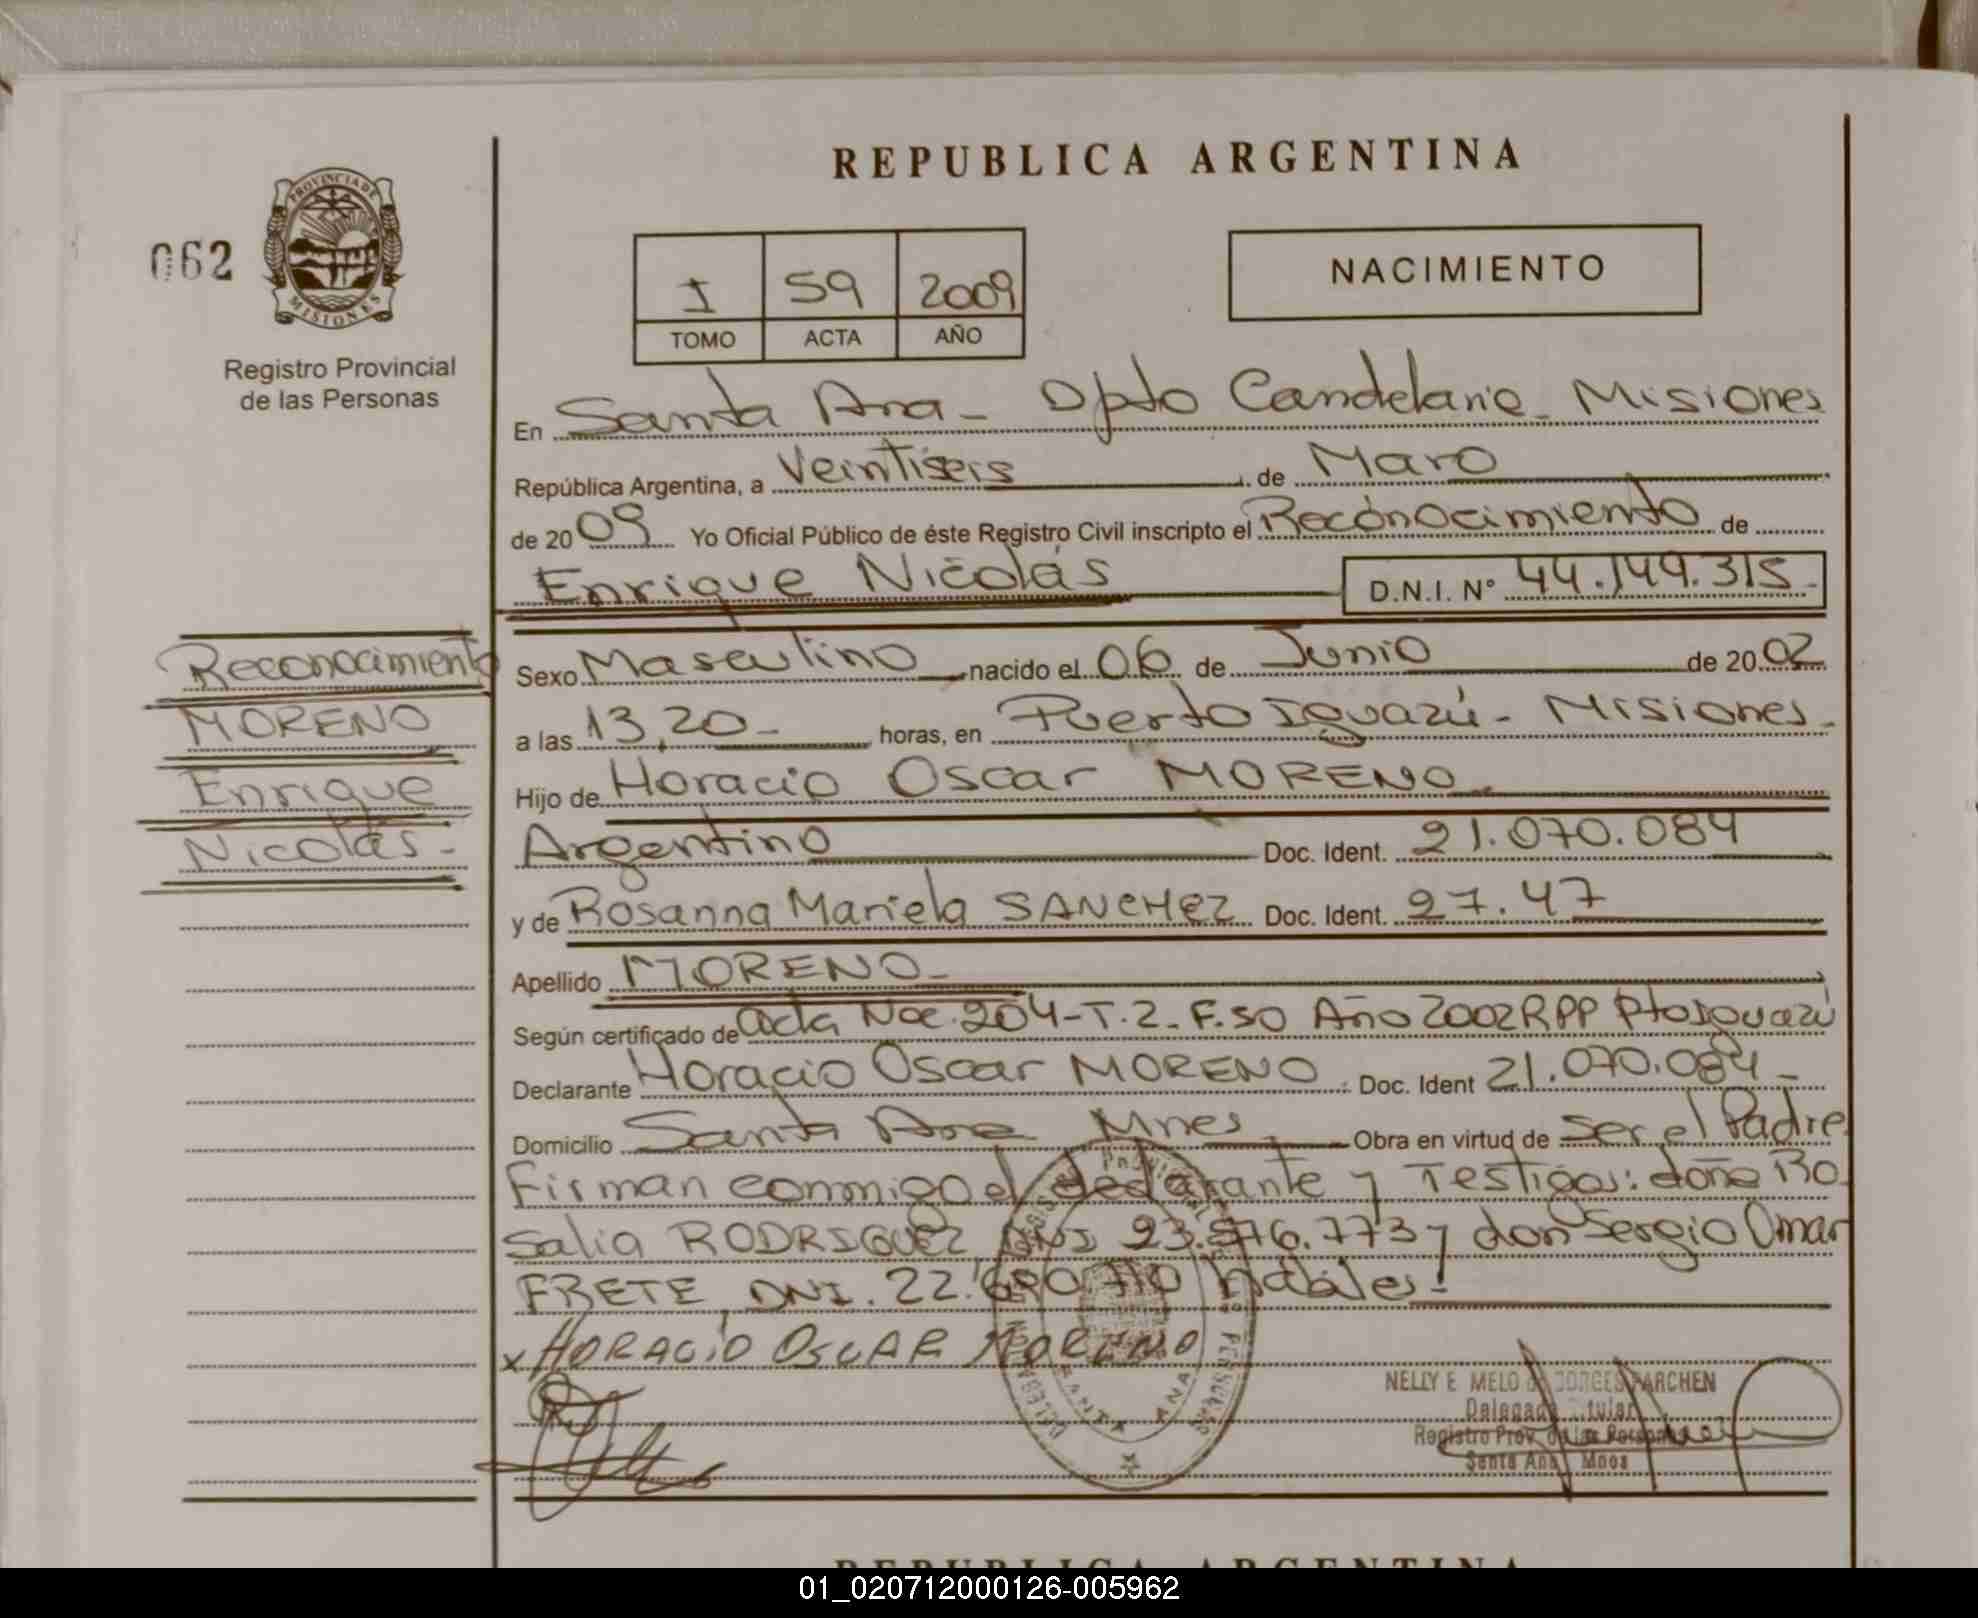 REPUBLICA ARGENTINA
062
PROVINCIA DE
MISIONES
Registro Provincial
de las Personas
I 59 2009
TOMO ACTA AÑO
NACIMIENTO
En Santa Ana - Dpto Candelaria - Misiones
República Argentina, a Veintiseis de Marzo
de 2009 Yo Oficial Público de éste Registro Civil inscripto el Reconocimiento de
Enrique Nicolás D.N.I. N° 44.149.315-
Reconocimiento
MORENO
Enrique
Nicolás-
Sexo Masculino nacido el 06 de Junio de 2002
a las 13,20- horas, en Puerto Iguazú - Misiones-
Hijo de Horacio Oscar MORENO
Argentino Doc. Ident. 21.070.084
y de Rosanna Mariela SANCHEZ Doc. Ident. 27.47
Apellido MORENO-
Según certificado de acta Nac. 204-T.2-F.50 Año 2002 RPP Pto Iguazú
Declarante Horacio Oscar MORENO. Doc. Ident 21.070.084-
Domicilio Santa Ana Mnes Obra en virtud de ser el Padre
Firman conmigo el declarante y Testigos: doña Ro
salia RODRIGUEZ DNI 23.576.773 y don Sergio Omar
FRETE, DNI. 22.690.710 hábiles.-
x HORACIO OSCAR MORENO
SANTA ANA
NELLY E. MELO de BORGES PARCHEN
Delegada Titular
Registro Prov. de las Personas
Santa Ana Mnes
REPUBLICA ARGENTINA
01_020712000126-005962